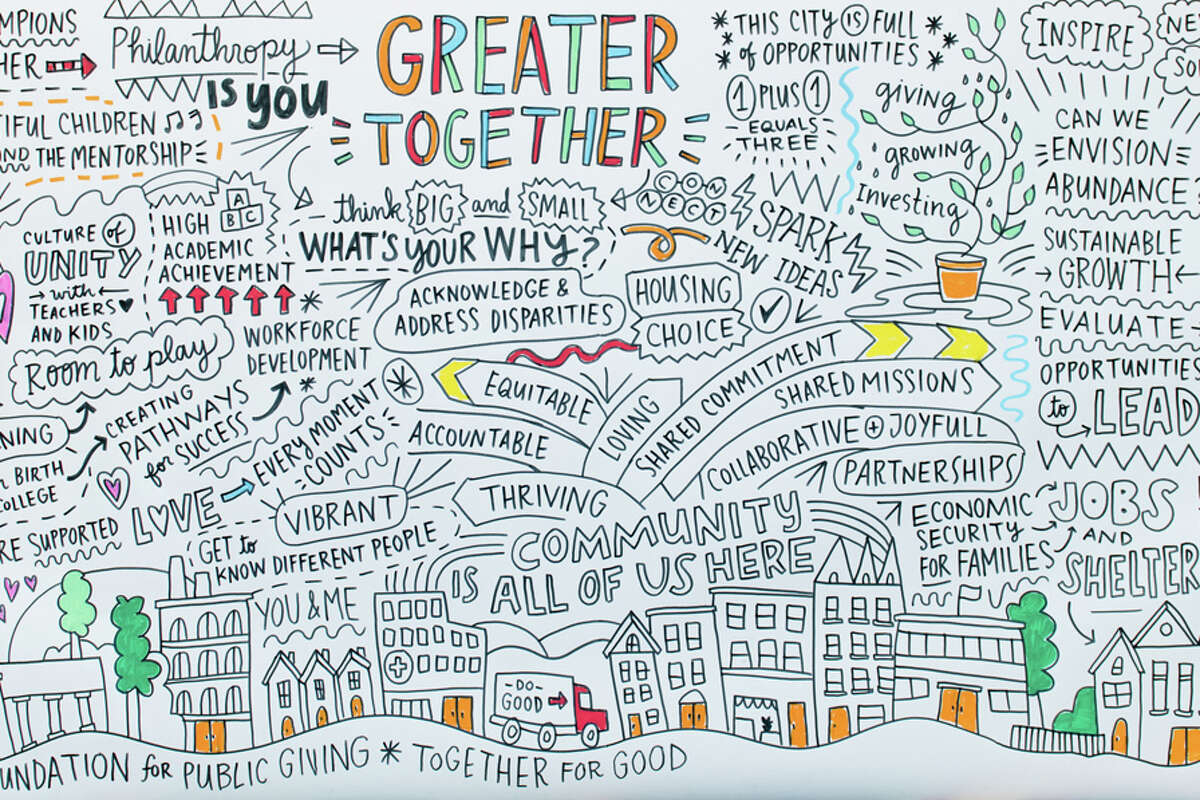 Philanthropy
IS YOU
THE MENTORSHIP
CHILDREN
GREATER
TOGETHER
THIS CITY IS FULL
of OPPORTUNITIES
1 PLUS 1
EQUALS
THREE
giving
growing
Investing
INSPIRE
CAN WE
ENVISION
ABUNDANCE
SUSTAINABLE
GROWTH
EVALUATE
OPPORTUNITIES
to LEAD
CULTURE of
UNITY
with
TEACHERS
AND KIDS
HIGH
ABC
ACADEMIC
ACHIEVEMENT
think BIG and SMALL
WHAT'S YOUR WHY?
CONNECT
SPARK
NEW IDEAS
ACKNOWLEDGE &
ADDRESS DISPARITIES
HOUSING
CHOICE
ROOM to play
WORKFORCE
DEVELOPMENT
CREATING
PATHWAYS
for SUCCESS
BIRTH
COLLEGE
SUPPORTED
LOVE
EVERY MOMENT
COUNTS
VIBRANT
GET to
KNOW DIFFERENT PEOPLE
YOU & ME
EQUITABLE
ACCOUNTABLE
LOVING
SHARED COMMITMENT
SHARED MISSIONS
COLLABORATIVE + JOYFULL
PARTNERSHIPS
THRIVING
COMMUNITY
IS ALL OF US HERE
ECONOMIC
SECURITY
FOR FAMILIES
JOBS
AND
SHELTER
DO
GOOD
UNDATION for PUBLIC GIVING * TOGETHER FOR GOOD